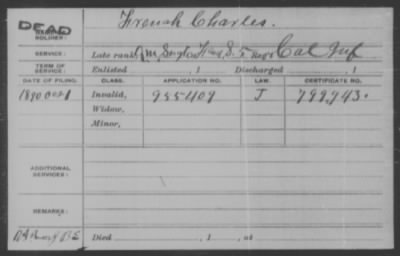 DEAD
French Charles.
NAME OF SOLDIER:
SERVICE: Late rank, Sergt 5 Reg't Cal Inf
TERM OF SERVICE: Enlisted , 1 Discharged , 1
DATE OF FILING. CLASS. APPLICATION NO. LAW. CERTIFICATE NO.
1890 Oct 1 Invalid, 955409 J 799,943.
Widow,
Minor,
ADDITIONAL SERVICES:
REMARKS:
Died , 1 , at